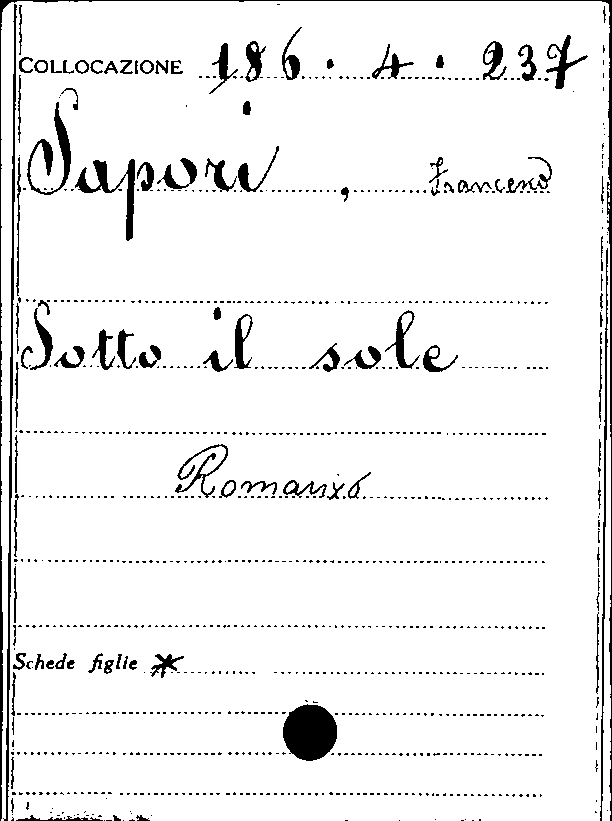 COLLOCAZIONE 186 . 4 . 237
Sapori , Francesco
Sotto il sole
Romanzo
Schede figlie *